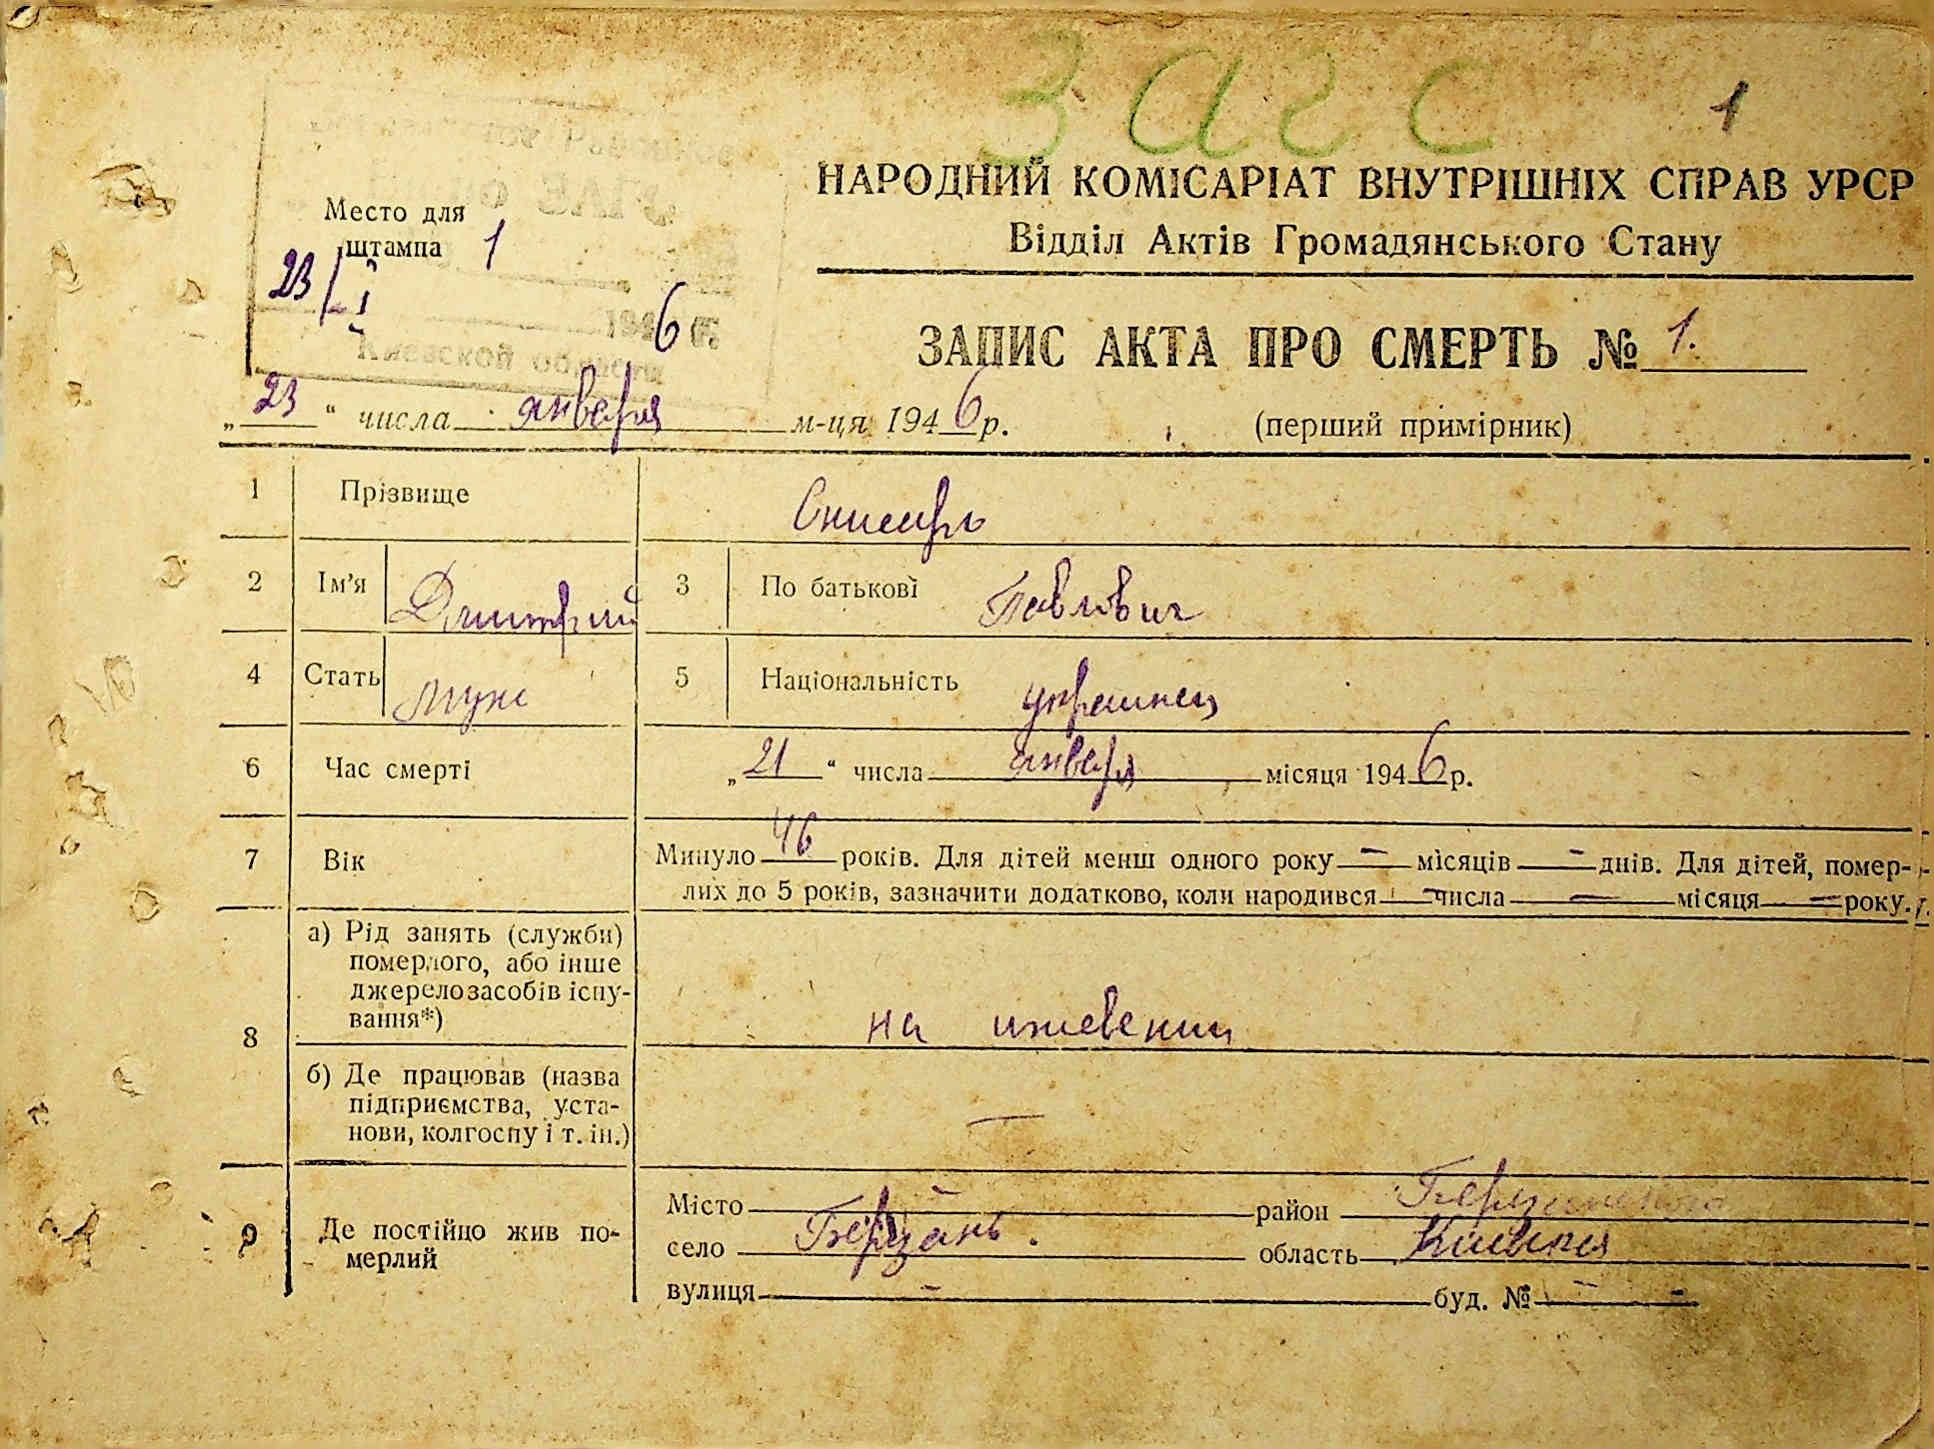 ЗАГС
1
Место для
штампа 1
23/I
1946 г.
Киевской области
НАРОДНИЙ КОМІСАРІАТ ВНУТРІШНІХ СПРАВ УРСР
Відділ Актів Громадянського Стану
ЗАПИС АКТА ПРО СМЕРТЬ № 1.
„23“ числа января м-ця 1946 р.
(перший примірник)
1 Прізвище
2 Ім'я Дмитрий 3 По батькові Павлович
4 Стать муж 5 Національність украинец
6 Час смерті „21“ числа января місяця 1946 р.
7 Вік Минуло 46 років. Для дітей менш одного року — місяців — днів. Для дітей, помер-
лих до 5 років, зазначити додатково, коли народився — числа — місяця — року.
8 а) Рід занять (служби)
померлого, або інше
джерело засобів існу-
вання*)
на иждевении
б) Де працював (назва
підприємства, уста-
нови, колгоспу і т. ін.)
—
9 Де постійно жив по-
мерлий
Місто — район
село Березань. область Киевская
вулиця — буд. № —